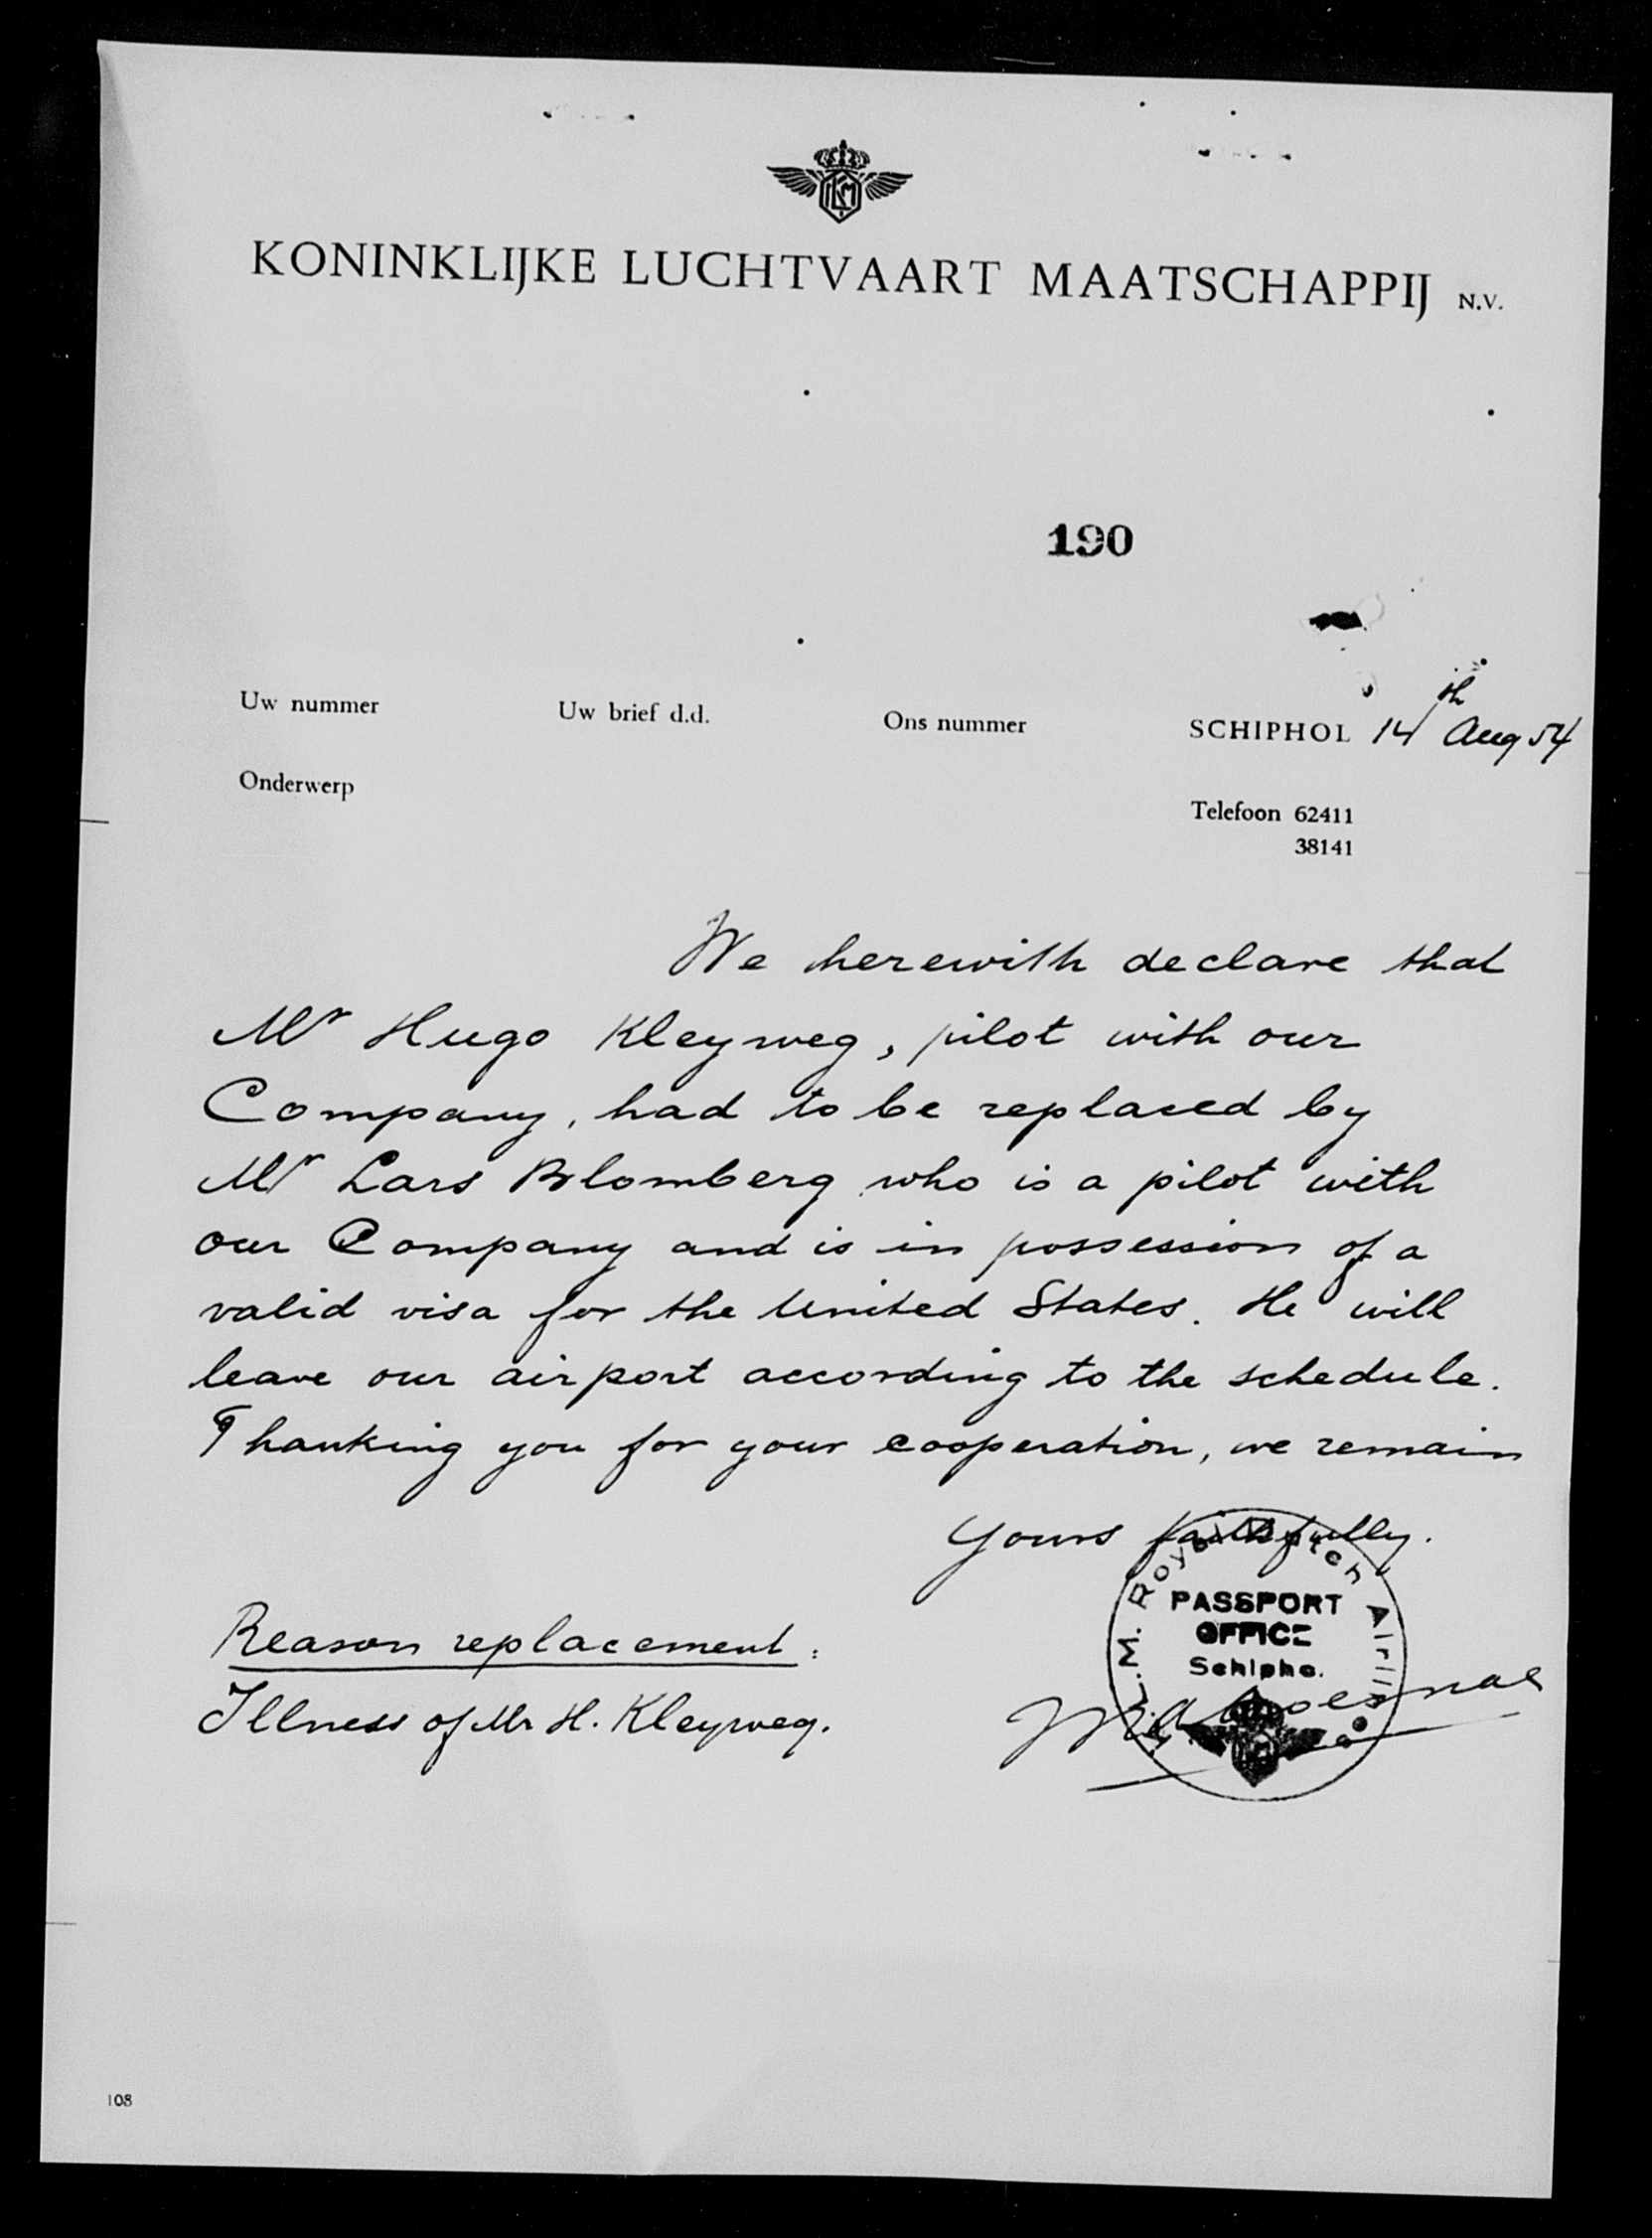 KLM
KONINKLIJKE LUCHTVAART MAATSCHAPPIJ N.V.
190
Uw nummer Uw brief d.d. Ons nummer SCHIPHOL 14th Aug 54
Onderwerp
Telefoon 62411
38141
We herewith declare that
Mr Hugo Kleyweg, pilot with our
Company, had to be replaced by
Mr Lars Blomberg who is a pilot with
our Company and is in possession of a
valid visa for the United States. He will
leave our airport according to the schedule.
Thanking you for your cooperation, we remain
Yours faithfully.
K.L.M. Royal Dutch Airlines
PASSPORT
OFFICE
Schipho.
Reason replacement:
Illness of Mr H. Kleyweg.
108